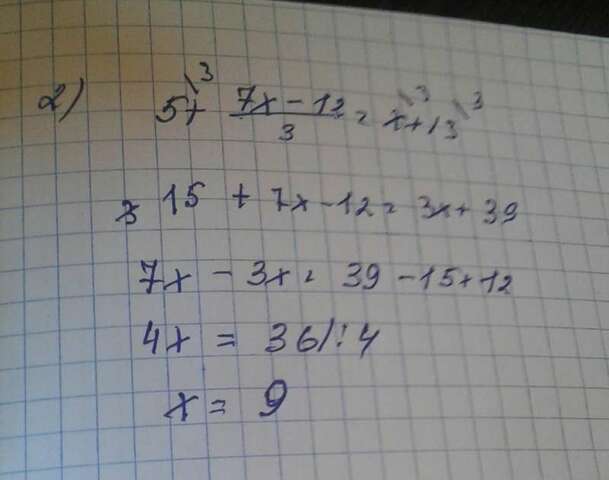 2) 5\³ + (7x - 12)/3 = x\³ + 13\³
15 + 7x - 12 = 3x + 39
7x - 3x = 39 - 15 + 12
4x = 36 /:4
x = 9